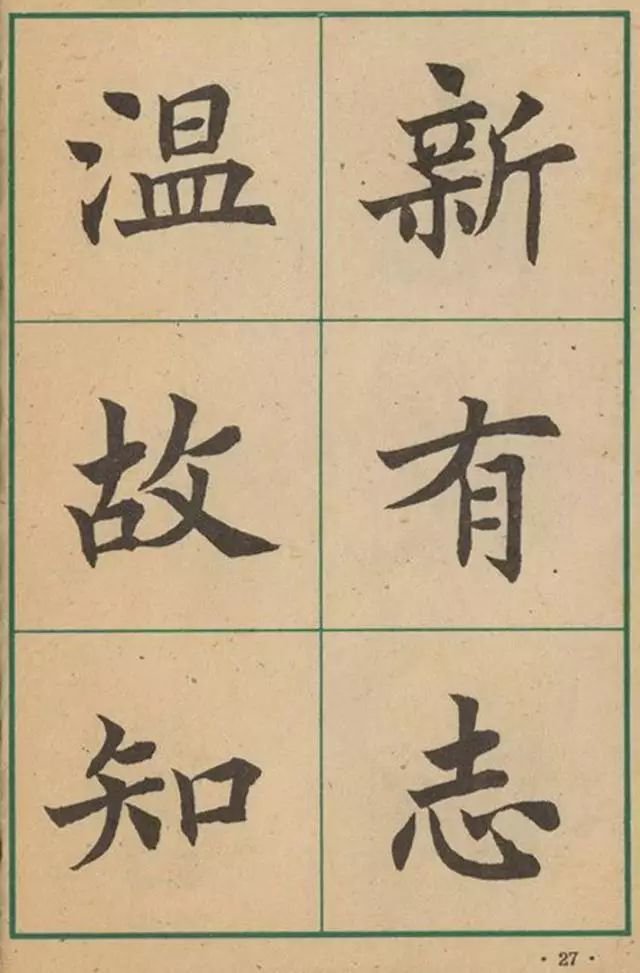 温故知
新有志
· 27 ·